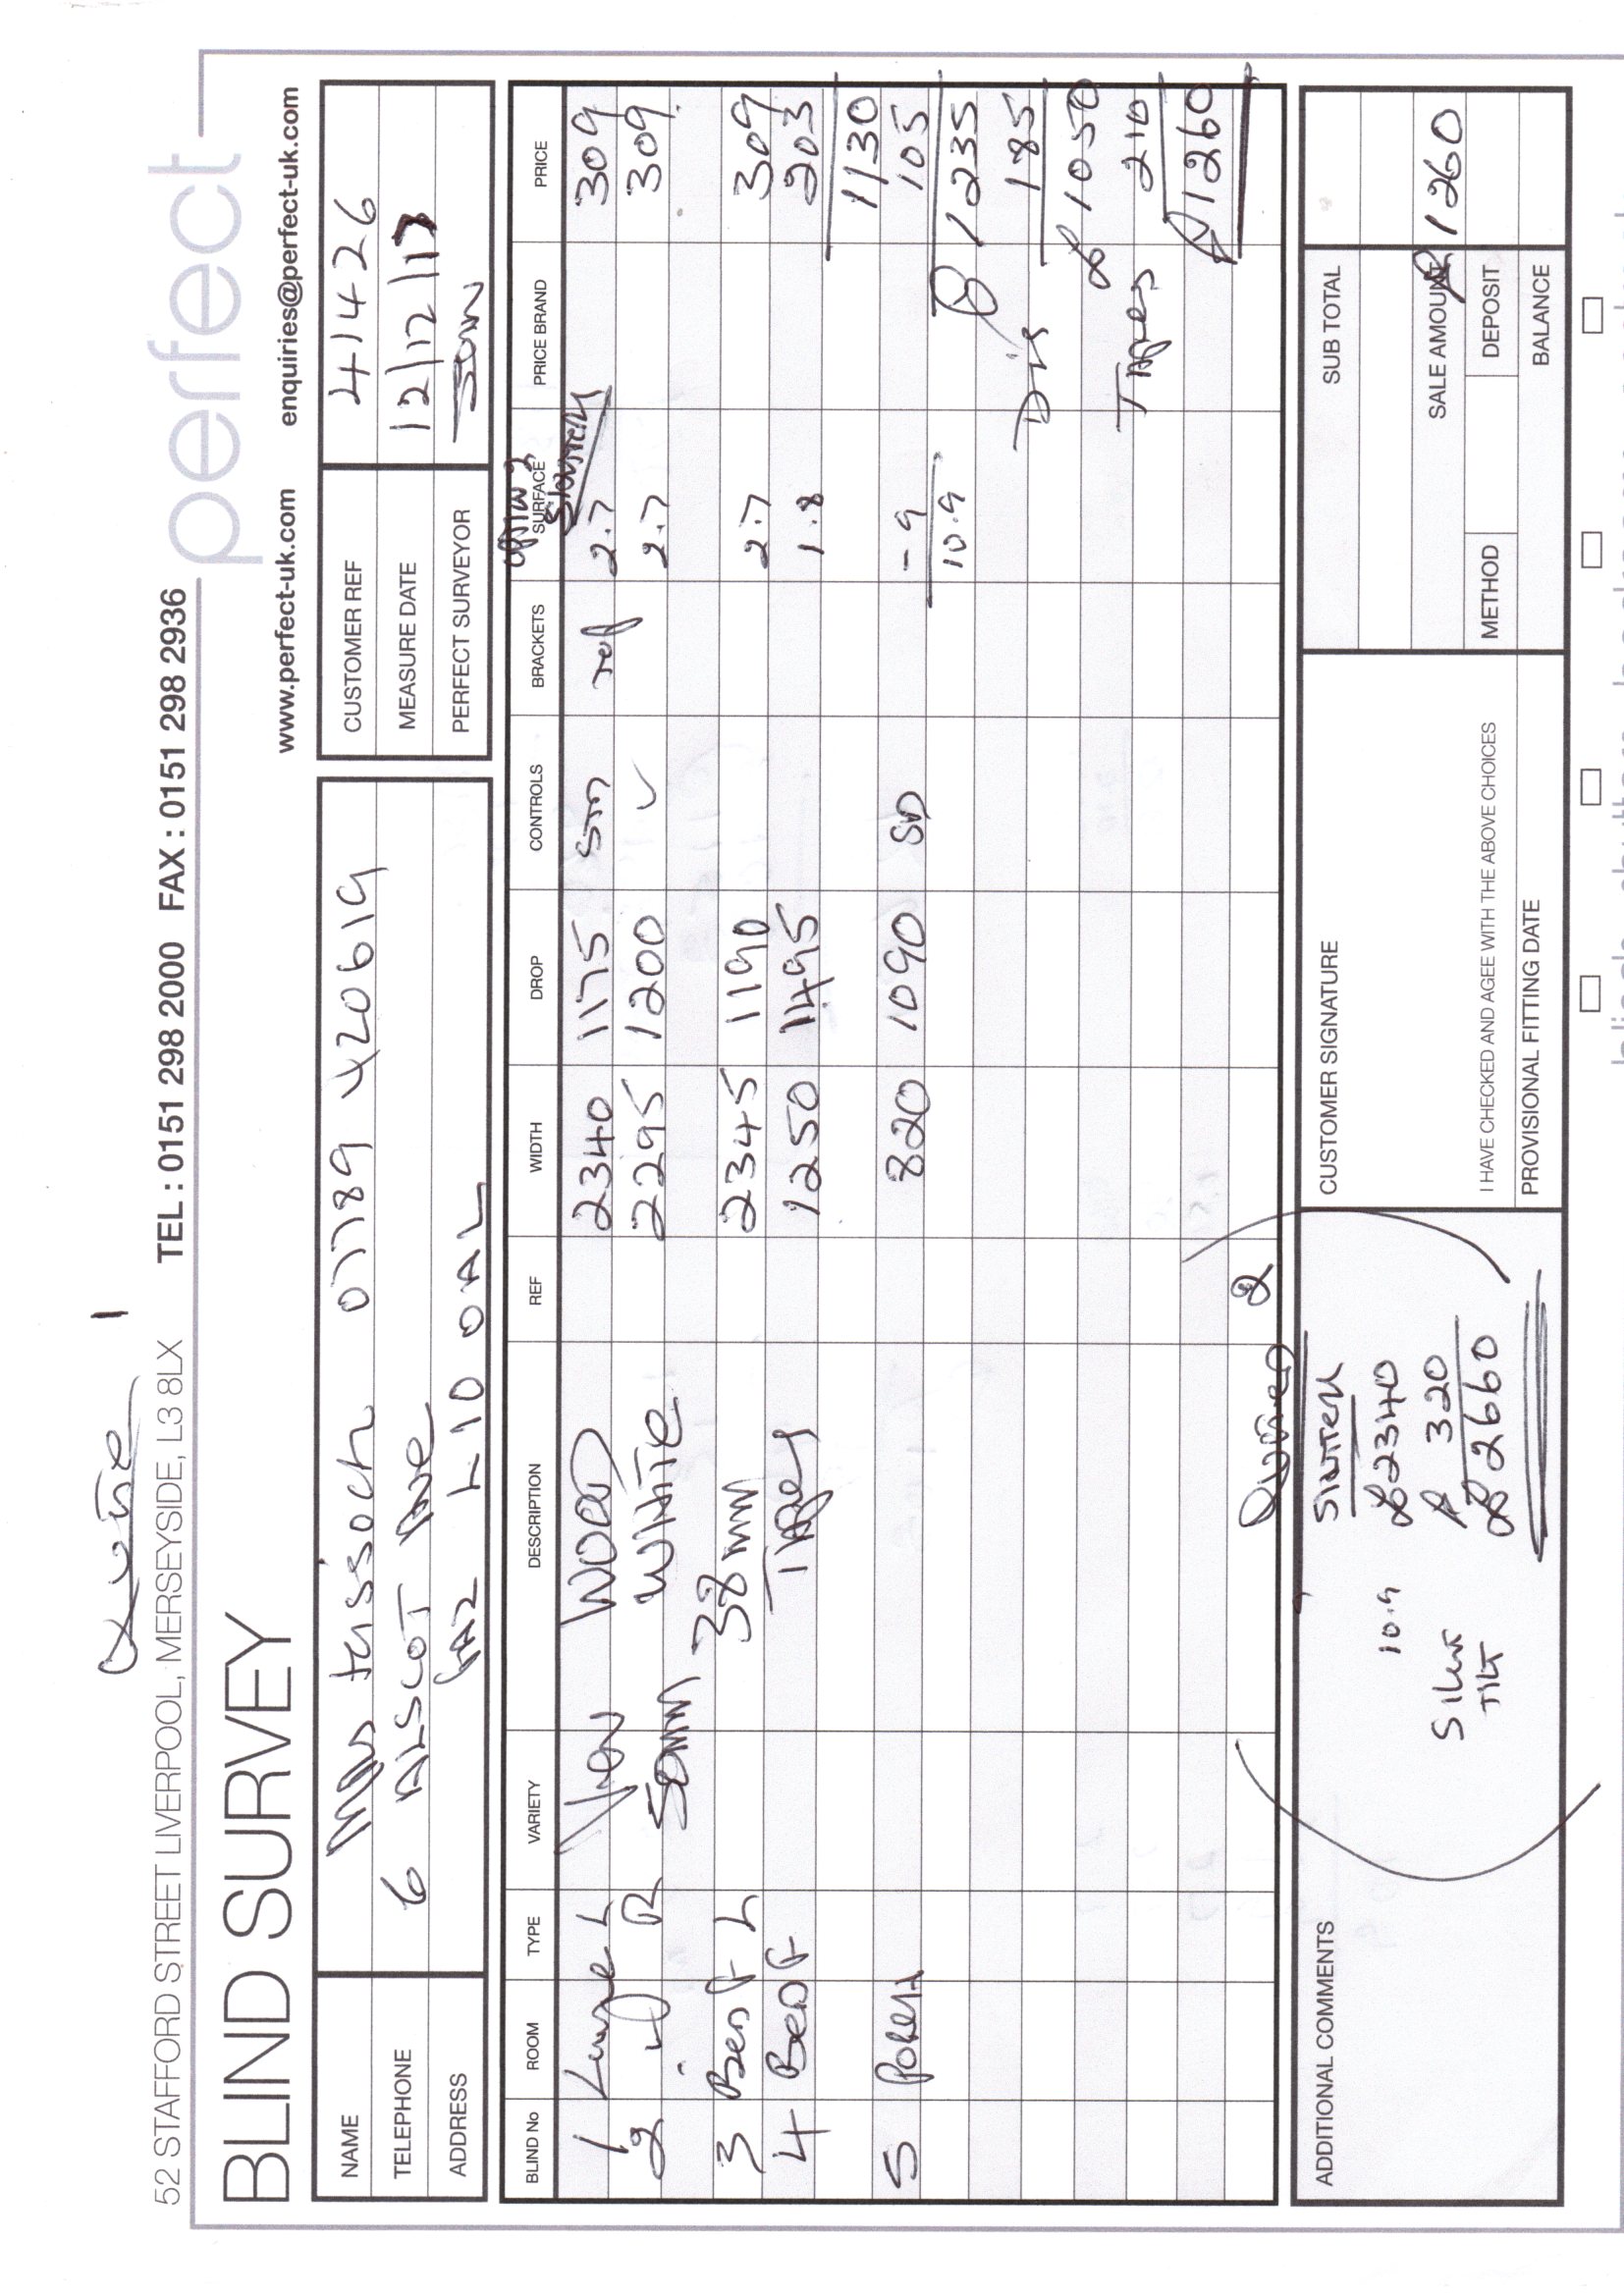 Quote 1
52 STAFFORD STREET LIVERPOOL, MERSEYSIDE, L3 8LX TEL : 0151 298 2000 FAX : 0151 298 2936
perfect
BLIND SURVEY
www.perfect-uk.com enquiries@perfect-uk.com
NAME 07789 420619
TELEPHONE 6 ALSCOT AVE
ADDRESS L10 0AL
CUSTOMER REF 41426
MEASURE DATE 12/12/17
PERFECT SURVEYOR JOHN
OPTION 2
SHUTTERS
BLIND No ROOM TYPE VARIETY DESCRIPTION REF WIDTH DROP CONTROLS BRACKETS SURFACE PRICE BRAND PRICE
1 Lounge L Ven WOOD 2340 1175 STD 2.7 309
2 R 50mm WHITE 2295 1200 2.7 309
3 Bed F L 38mm 2345 1190 2.7 309
4 Bed F TAPES 1250 1495 1.8 203
1130
5 PORCH 820 1090 SD - 9 105
10.9 £1235
Dis 185
£1050
TAPES 210
£1260
QUOTED 2
ADDITIONAL COMMENTS
SHUTTERS
10.9 £2340
SILENT TILT £ 320
£2660
CUSTOMER SIGNATURE
I HAVE CHECKED AND AGREE WITH THE ABOVE CHOICES
PROVISIONAL FITTING DATE
SUB TOTAL
SALE AMOUNT £1260
METHOD DEPOSIT
BALANCE